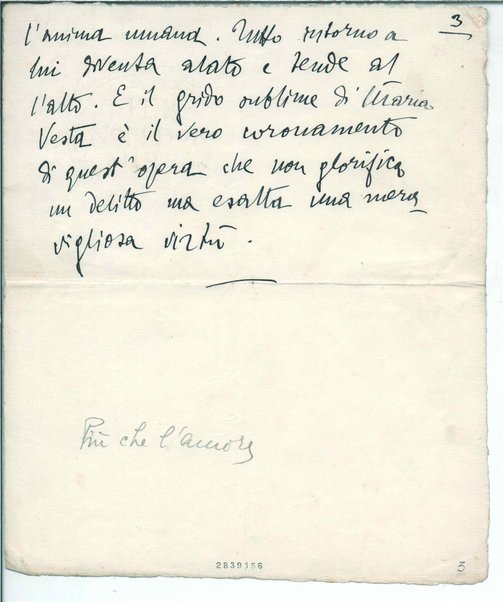 3
l'anima umana. Tutto intorno a
lui diventa alato e tende al
l'alto. E il grido sublime di Maria
Vesta è il vero coronamento
di quest'opera che non glorifica
un delitto ma esalta una mera-
vigliosa virtù.
Più che l'amore
2839156
3